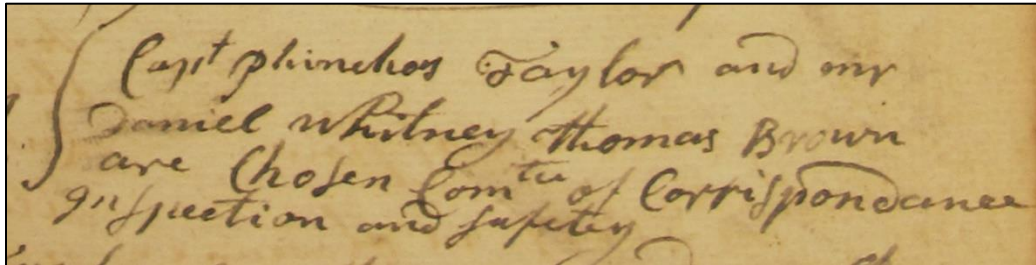 Capt Phinehas Taylor and mr
Daniel Whitney Thomas Brown
are Chosen Comtee of Corrispondance
Inspection and safety